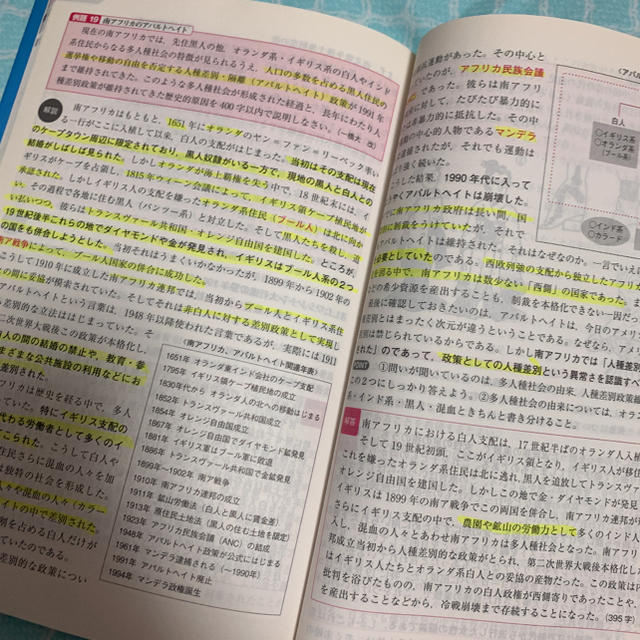 例題 19 南アフリカのアパルトヘイト
現在の南アフリカでは、先住黒人の他、オランダ系・イギリス系の白人やインド
系住民からなる多人種社会の特徴が見られるうえ、人口の多数を占める黒人住民の
選挙権や移動の自由を否定する人種差別・隔離(アパルトヘイト)政策が1991年
まで維持されてきた。このような多人種社会が形成された経過と、長年にわたり人
種差別政策が維持されてきた歴史的原因を400字以内で説明しなさい。(一橋大 改)
解説
南アフリカはもともと、1651年にオランダのヤン=ファン=リーベック率い
る一行がここに入植して以来、白人の支配がはじまった。当初はその支配は現在
のケープタウン周辺に限定されており、黒人奴隷がいる一方で、現地の黒人と白人との
結婚がしばしば見られた。しかしオランダが海上覇権を失う中で、18世紀末には、イ
ギリスがケープを占領し、1815年ウィーン会議によって、イギリス領ケープ植民地が
承認された。しかしイギリス人の支配を嫌ったオランダ系住民(ブール人)は北に向か
い、その過程で各地に住む黒人(バンツー系)と対立した。そして黒人たちを殺し、追
い払いつつ、彼らはトランスヴァール共和国・オレンジ自由国を建国した。ところが、
19世紀後半これらの地でダイヤモンドや金が発見され、イギリスはブール人系の2つ
の国をも併合しようとした。当初それはうまくいかなかったが、1899年から1902年の
南ア戦争によって、ブール人国家の併合に成功した。
こうして1910年に成立した南アフリカ連邦では、当初からブール人とイギリス系住
の間の妥協が模索されていた。そしてそれは非白人に対する差別政策として実現し
アパルトヘイトという言葉は、1948年以降使われた言葉であるが、実際には1911
差別的な立法ははじまっていた。そ
二次世界大戦後この政策が本格化し、
人の間の結婚の禁止や、教育・参
まざまな公共施設の利用などにお
差別された。
フリカは歴史を経る中で、多人
た。特にイギリス支配の
代わる労働者として多くのイ
てこられた。こうして白人や
住民さらに混血の人々を加
は独特の社会を形成した。
人や混血の人々(カラー
イトの中で差別された
割を占める白人だけが
ていたのである。
差別的な政策につい
〈南アフリカ、アパルトヘイト関連年表〉
1651年 オランダ東インド会社のケープ支配
1795年 イギリス領ケープ植民地の成立
1830年代から オランダ人の北への移動はじまる
1852年 トランスヴァール共和国成立
1854年 オレンジ自由国成立
1867年 オレンジ自由国でダイヤモンド鉱発見
1881年 イギリス軍はブール軍に敗退
1886年 トランスヴァール共和国で金鉱発見
1899年〜1902年 南ア戦争
1910年 南アフリカ連邦の成立
1911年 鉱山労働法(白人と黒人に賃金差)
1913年 原住民土地法(黒人の住む土地を限定)
1923年 アフリカ民族会議(ANC)の結成
1948年 アパルトヘイト政策が公式にはじまる
1961年 マンデラ逮捕される(〜1990年)
1991年 アパルトヘイト廃止
1994年 マンデラ政権誕生
民運動があった。その中心と
いたのが、アフリカ民族会議
である。彼らは南アフリ
に対して、たびたび暴力的に
に暴力的に抵抗した。その
動の中心的人物であるマンデラ
逮捕されたが、それでも運動は
り強く続いた。
した結果、1990年代に入って
やくアパルトヘイトは崩壊した。
でに南アフリカ政府は長い間、国
的に制裁を受けてきたが、それで
アパルトヘイトは維持された。それはなぜなのか。一言でいえ
必要としていたのである。西欧列強の支配から独立したアフリカ
を図る中で、南アフリカは数少ない「西側」の国家であった。ま
どの希少資源を産出することも、制裁を本格化できない一因だった
最後に確認しておきたいのは、アパルトヘイトは、今日のアメリ
差別とはまったく次元が違うということである。なぜなら、アメ
差別は禁じられているからである。しかし南アフリカでは「人種差別
された」のであって、政策としての人種差別という異常さを認識すべ
POINT ①問いが聞いているのは、多人種社会の由来、人種差別政策維
この2つにしっかり答えよう。②多人種社会の由来については、オラン
系・インド系・黒人・混血ときちんと書き分けること。
〈アパ
白人
○イギリス系
○オランダ系
(ブール系)
○インド系
○カラード
解答
南アフリカにおける白人支配は、17世紀半ばのオランダ人入植
そして19世紀初頭、ここがイギリス領となり、イギリス人が移
これを嫌ったオランダ系住民は北に逃れ、黒人を追放してトランスヴ
オレンジ自由国を建国した。しかしこの地で金・ダイヤモンドが発見
とイギリスは1899年の南ア戦争でこの両国を併合し、南アフリカ連邦
さらにイギリス支配の中で、農園や鉱山の労働力として多くのインド人
入し、混血の人々とあわせ南アフリカは多人種社会となった。南アフリ
邦成立当初から人種差別的な政策がとられ、第二次世界大戦後本格化した
はイギリス人たちとオランダ系白人との妥協の産物だった。この政策は
批判を浴びたものの、南アの白人政権が西側寄りであったことや、
を産出することなどから、冷戦崩壊まで存続することになった。(395字)